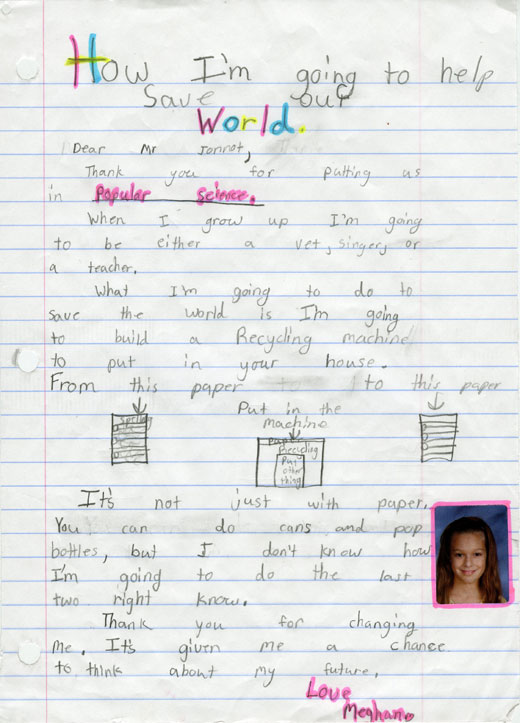 How I'm going to help
Save our
World.
Dear Mr Jonnot,
Thank you for putting us
in Popular Seinece.
When I grow up I'm going
to be either a vet, singer, or
a teacher.
What I'm going to do to
save the world is I'm going
to build a Recycling machine
to put in your house.
From this paper to this paper
Put in the
machine
Spelling
Paper
Recycling
Put
other
thing
It's not just with paper.
You can do cans and pop
bottles, but I don't know how
I'm going to do the last
two right know.
Thank you for changing
me. It's given me a chance
to think about my future.
Love
Meghan